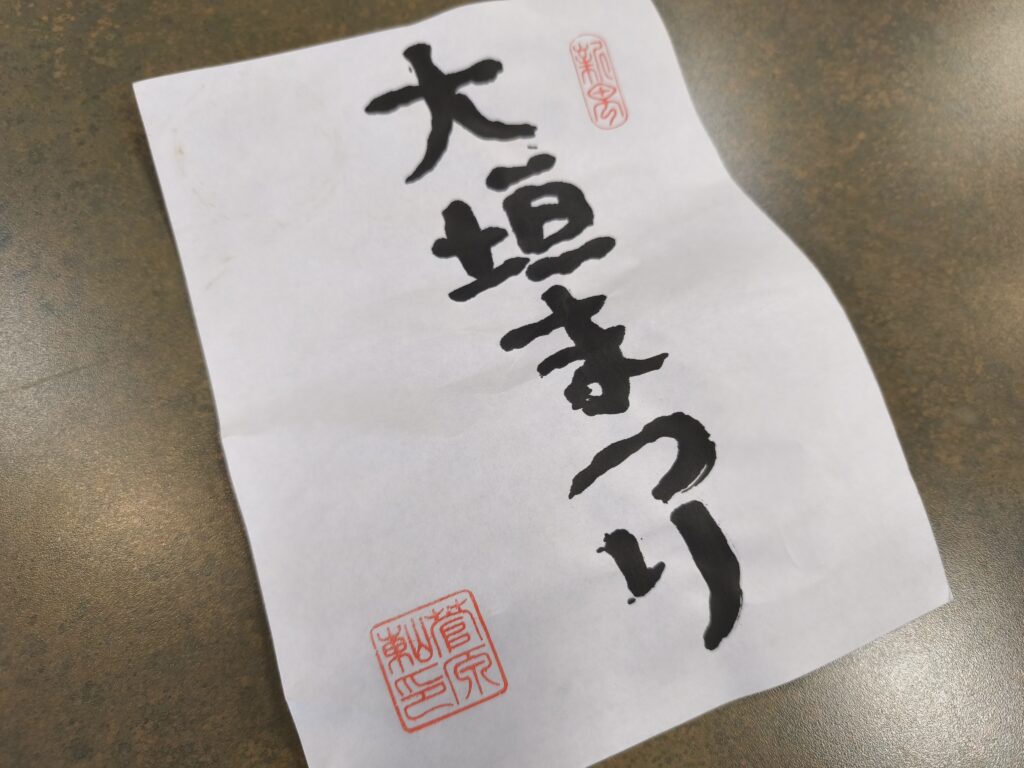 大垣まつり